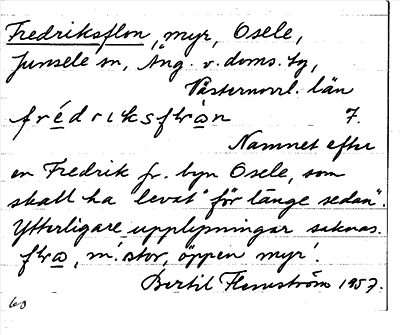 Fredriksflon, myr, Osele,
Junsele sn, Ång. v. doms. tg,
Västernorrl. län
frédriksflròn 7.
Namnet efter
en Fredrik fr. byn Osele, som
skall ha levat "för länge sedan".
Ytterligare upplysningar saknas.
flra, m. 'stor, öppen myr'.
Bertil Flemström 1957.
60